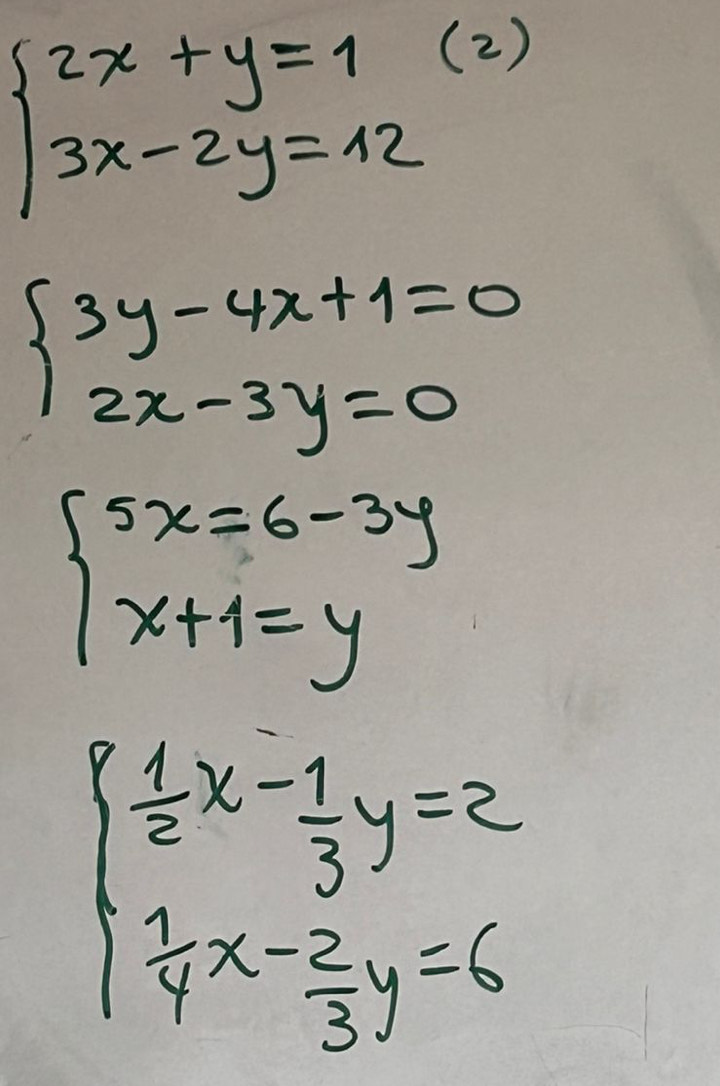 2x + y = 1 (2)
3x - 2y = 12
3y - 4x + 1 = 0
2x - 3y = 0
5x = 6 - 3y
x + 1 = y
1/2 x - 1/3 y = 2
1/4 x - 2/3 y = 6